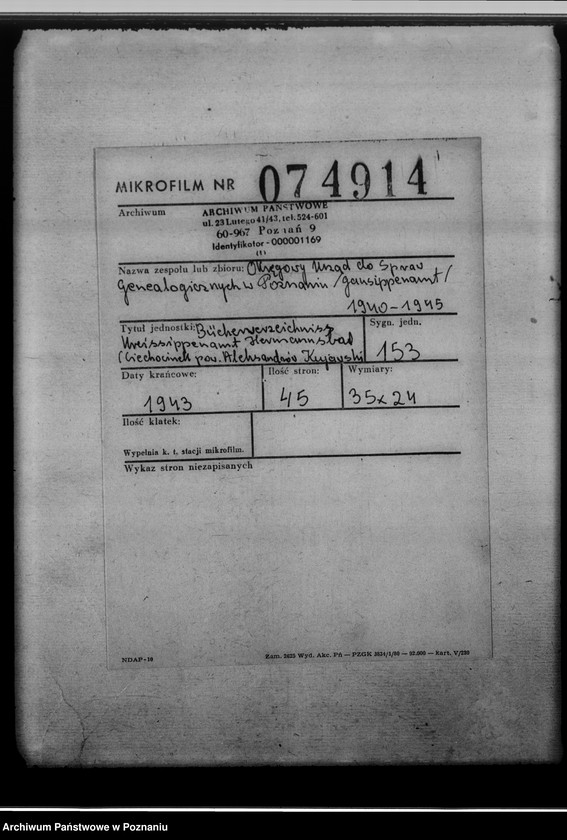 MIKROFILM NR 074914
Archiwum
ARCHIWUM PAŃSTWOWE
ul. 23 Lutego 41/43, tel. 524-601
60-967 Poznań 9
Identyfikator - 000001169
(1)
Nazwa zespołu lub zbioru: Okręgowy Urząd do Spraw
Genealogicznych w Poznaniu /Gausippenamt/
1940-1945
Tytuł jednostki: Bücherverzeichniss
Kreissippenamt Hermannsbad
(Ciechocinek pow. Aleksandrów Kujawski
Sygn. jedn.
153
Daty krańcowe:
1943
Ilość stron:
45
Wymiary:
35x24
Ilość klatek:
Wypełnia k. t. stacji mikrofilm.
Wykaz stron niezapisanych
NDAP-10
Zam. 2625 Wyd. Akc. Pń — PZGK 3624/1/80 — 92.000 — kart. V/250
Archiwum Państwowe w Poznaniu